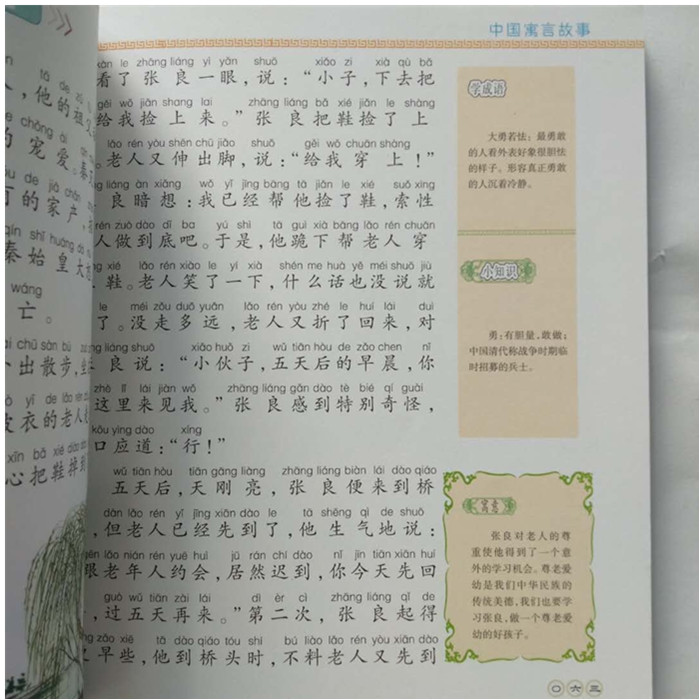 中国寓言故事
看了张良一眼，说：“小子，下去把
xiǎo zi xià qù bǎ
gěi wǒ jiǎn shang lai zhāng liáng bǎ xié jiǎn le shàng
给我捡上来。”张良把鞋捡了上
lǎo rén yòu shēn chū jiǎo shuō gěi wǒ chuān shàng
老人又伸出脚，说：“给我穿上！”
liáng àn xiǎng wǒ yǐ jīng bāng tā jiǎn le xié suǒ xìng
良暗想：我已经帮他捡了鞋，索性
rén zuò dào dǐ ba yú shì tā guì xià bāng lǎo rén chuān
人做到底吧。于是，他跪下帮老人穿
xié lǎo rén xiào le yí xià shén me huà yě méi shuō jiù
鞋。老人笑了一下，什么话也没说就
le méi zǒu duō yuǎn lǎo rén yòu zhé le huí lái duì
了。没走多远，老人又折了回来，对
liáng shuō xiǎo huǒ zi wǔ tiān hòu de zǎo chen nǐ
良说：“小伙子，五天后的早晨，你
zhè lǐ lái jiàn wǒ zhāng liáng gǎn dào tè bié qí guài
这里来见我。”张良感到特别奇怪，
kǒu yìng dào xíng
口应道：“行！”
wǔ tiān hòu tiān gāng liàng zhāng liáng biàn lái dào qiáo
五天后，天刚亮，张良便来到桥
dàn lǎo rén yǐ jīng xiān dào le tā shēng qì de shuō
，但老人已经先到了，他生气地说：
lǎo nián rén yuē huì jū rán chí dào nǐ jīn tiān xiān huí
跟老年人约会，居然迟到，你今天先回
guò wǔ tiān zài lái dì èr cì zhāng liáng qǐ de
，过五天再来。”第二次，张良起得
zǎo xiē tā dào qiáo tóu shí bú liào lǎo rén yòu xiān dào
又早些，他到桥头时，不料老人又先到
学成语
大勇若怯：最勇敢
的人看外表好象很胆怯
的样子。形容真正勇敢
的人沉着冷静。
小知识
勇：有胆量，敢做；
中国清代称战争时期临
时招募的兵士。
寓意
张良对老人的尊
重使他得到了一个意
外的学习机会。尊老爱
幼是我们中华民族的
传统美德，我们也要学
习张良，做一个尊老爱
幼的好孩子。
〇六三
，他的祖父
宠爱。秦
的家产，
qín shǐ huáng
秦始皇大
wáng
亡。
出散步，
衣的老人
心把鞋掉到